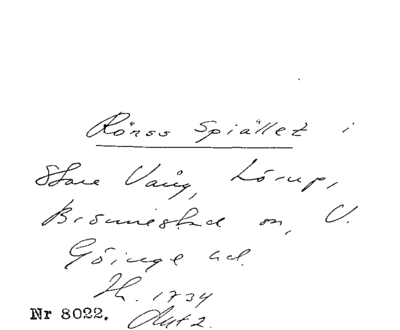 Rönss Spiället i
Stare Vång, Lörup,
Brönnestad sn, V.
Göinge hd.
Lh. 1734
Akt 2.
Nr 8022.